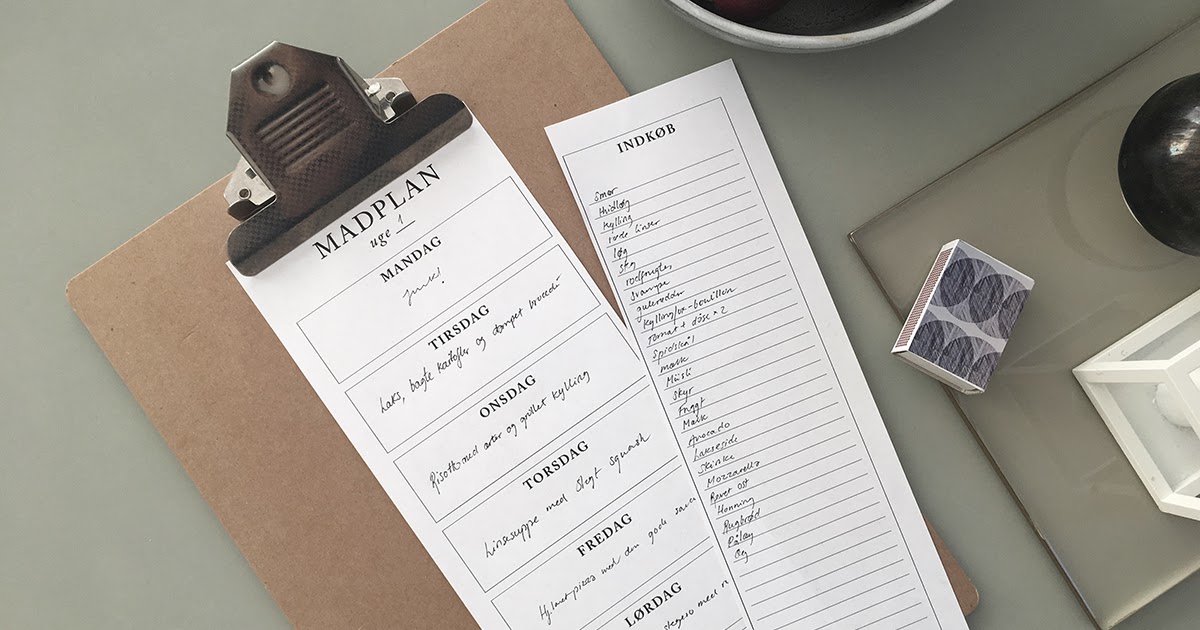 MADPLAN
uge 1
MANDAG
TIRSDAG
Laks, bagte kartofler og dampet broccoli
ONSDAG
Risotto med ærter og grillet kylling
TORSDAG
Linsesuppe med stegt squash
FREDAG
Hj.lavet-pizza med den gode
LØRDAG
med
INDKØB
Smør
Hvidløg
Kylling
røde linser
løg
rodfrugter
Svampe
gulerødder
Kylling/gr-bouillon
Tomat + dåse x 2
Spidskål
mælk
Müsli
Skyr
Frugt
Mælk
Avocado
Lakseside
Skinke
Mozzarella
Revet ost
Honning
Rugbrød
Pålæg